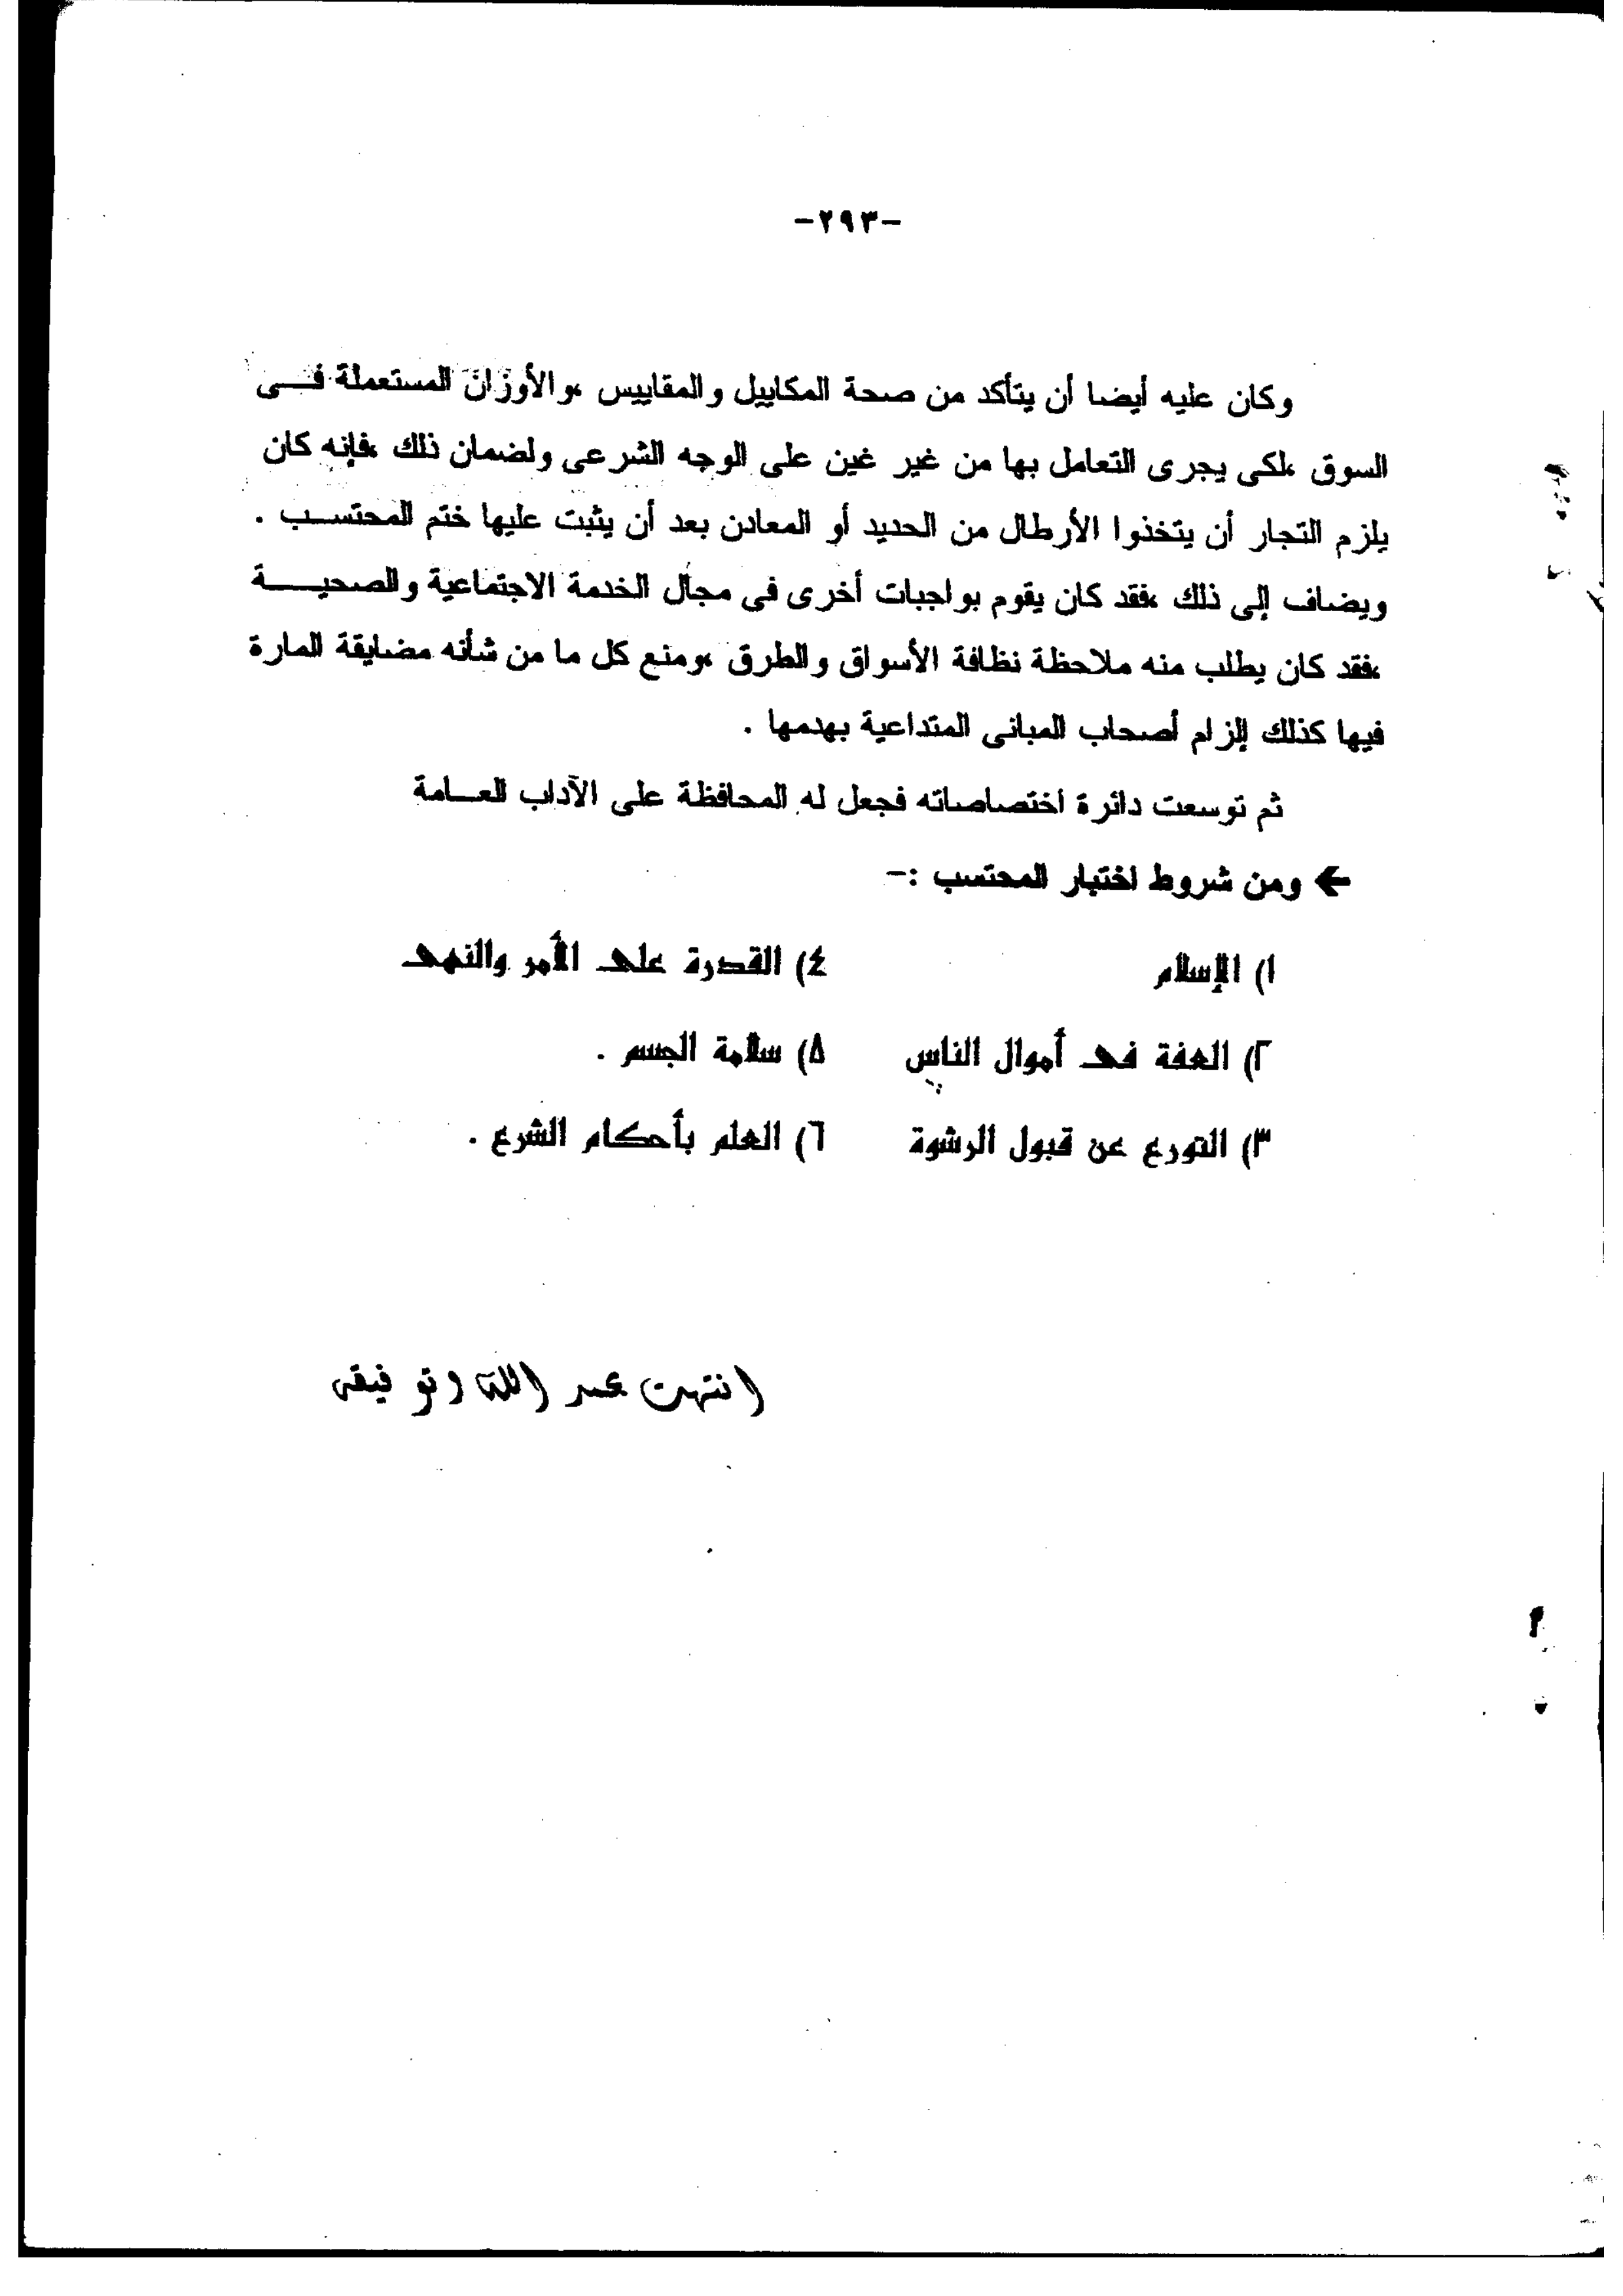 -٢٩٣-
وكان عليه أيضا أن يتأكد من صحة المكاييل والمقاييس ،والأوزان المستعملة فى
السوق ،لكى يجرى التعامل بها من غير غبن على الوجه الشرعى ولضمان ذلك ،فإنه كان
يلزم التجار أن يتخذوا الأرطال من الحديد أو المعادن بعد أن يثبت عليها ختم المحتسب .
ويضاف إلى ذلك ،فقد كان يقوم بواجبات أخرى فى مجال الخدمة الاجتماعية والصحية
،فقد كان يطلب منه ملاحظة نظافة الأسواق والطرق ،ومنع كل ما من شأنه مضايقة المارة
فيها كذلك إلزام أصحاب المبانى المتداعية بهدمها .
ثم توسعت دائرة اختصاصاته فجعل له المحافظة على الآداب العامة
← ومن شروط اختيار المحتسب :-
١) الإسلام ٤) القدرة على الأمر والنهى
٢) العفة فى أموال الناس ٥) سلامة الجسم .
٣) التورع عن قبول الرشوة ٦) العلم بأحكام الشرع .
انتهت بحمد الله وتوفيقه